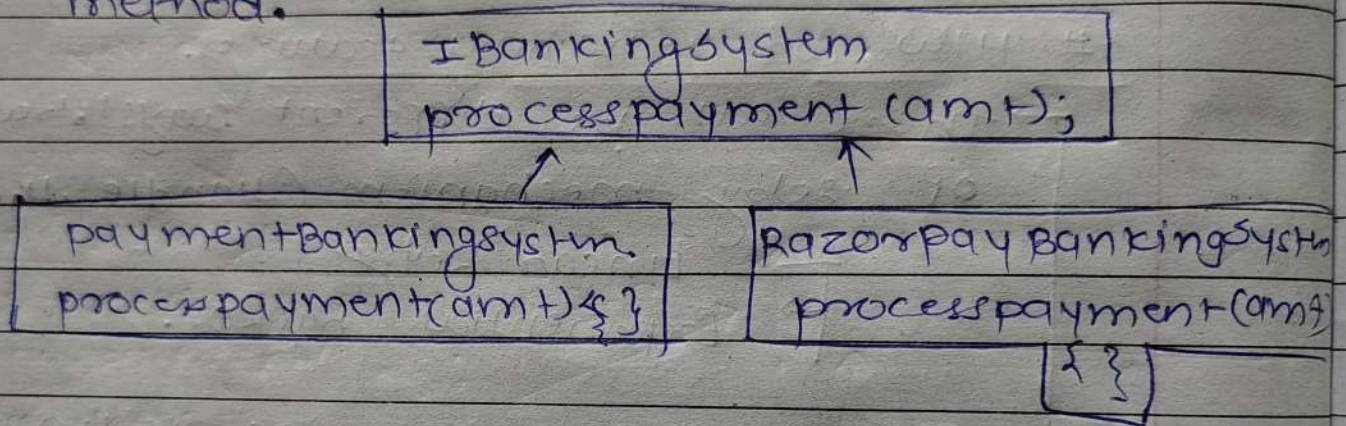 method.
IBankingSystem
processpayment (amt);
paymentBankingsystm.
processpayment(amt){ }
Razorpay BankingSystm
processpayment(amt)
{ }